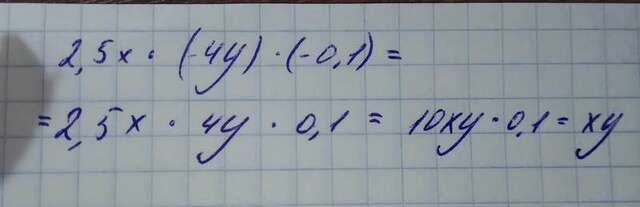 2,5x · (-4y) · (-0,1) =
= 2,5x · 4y · 0,1 = 10xy · 0,1 = xy